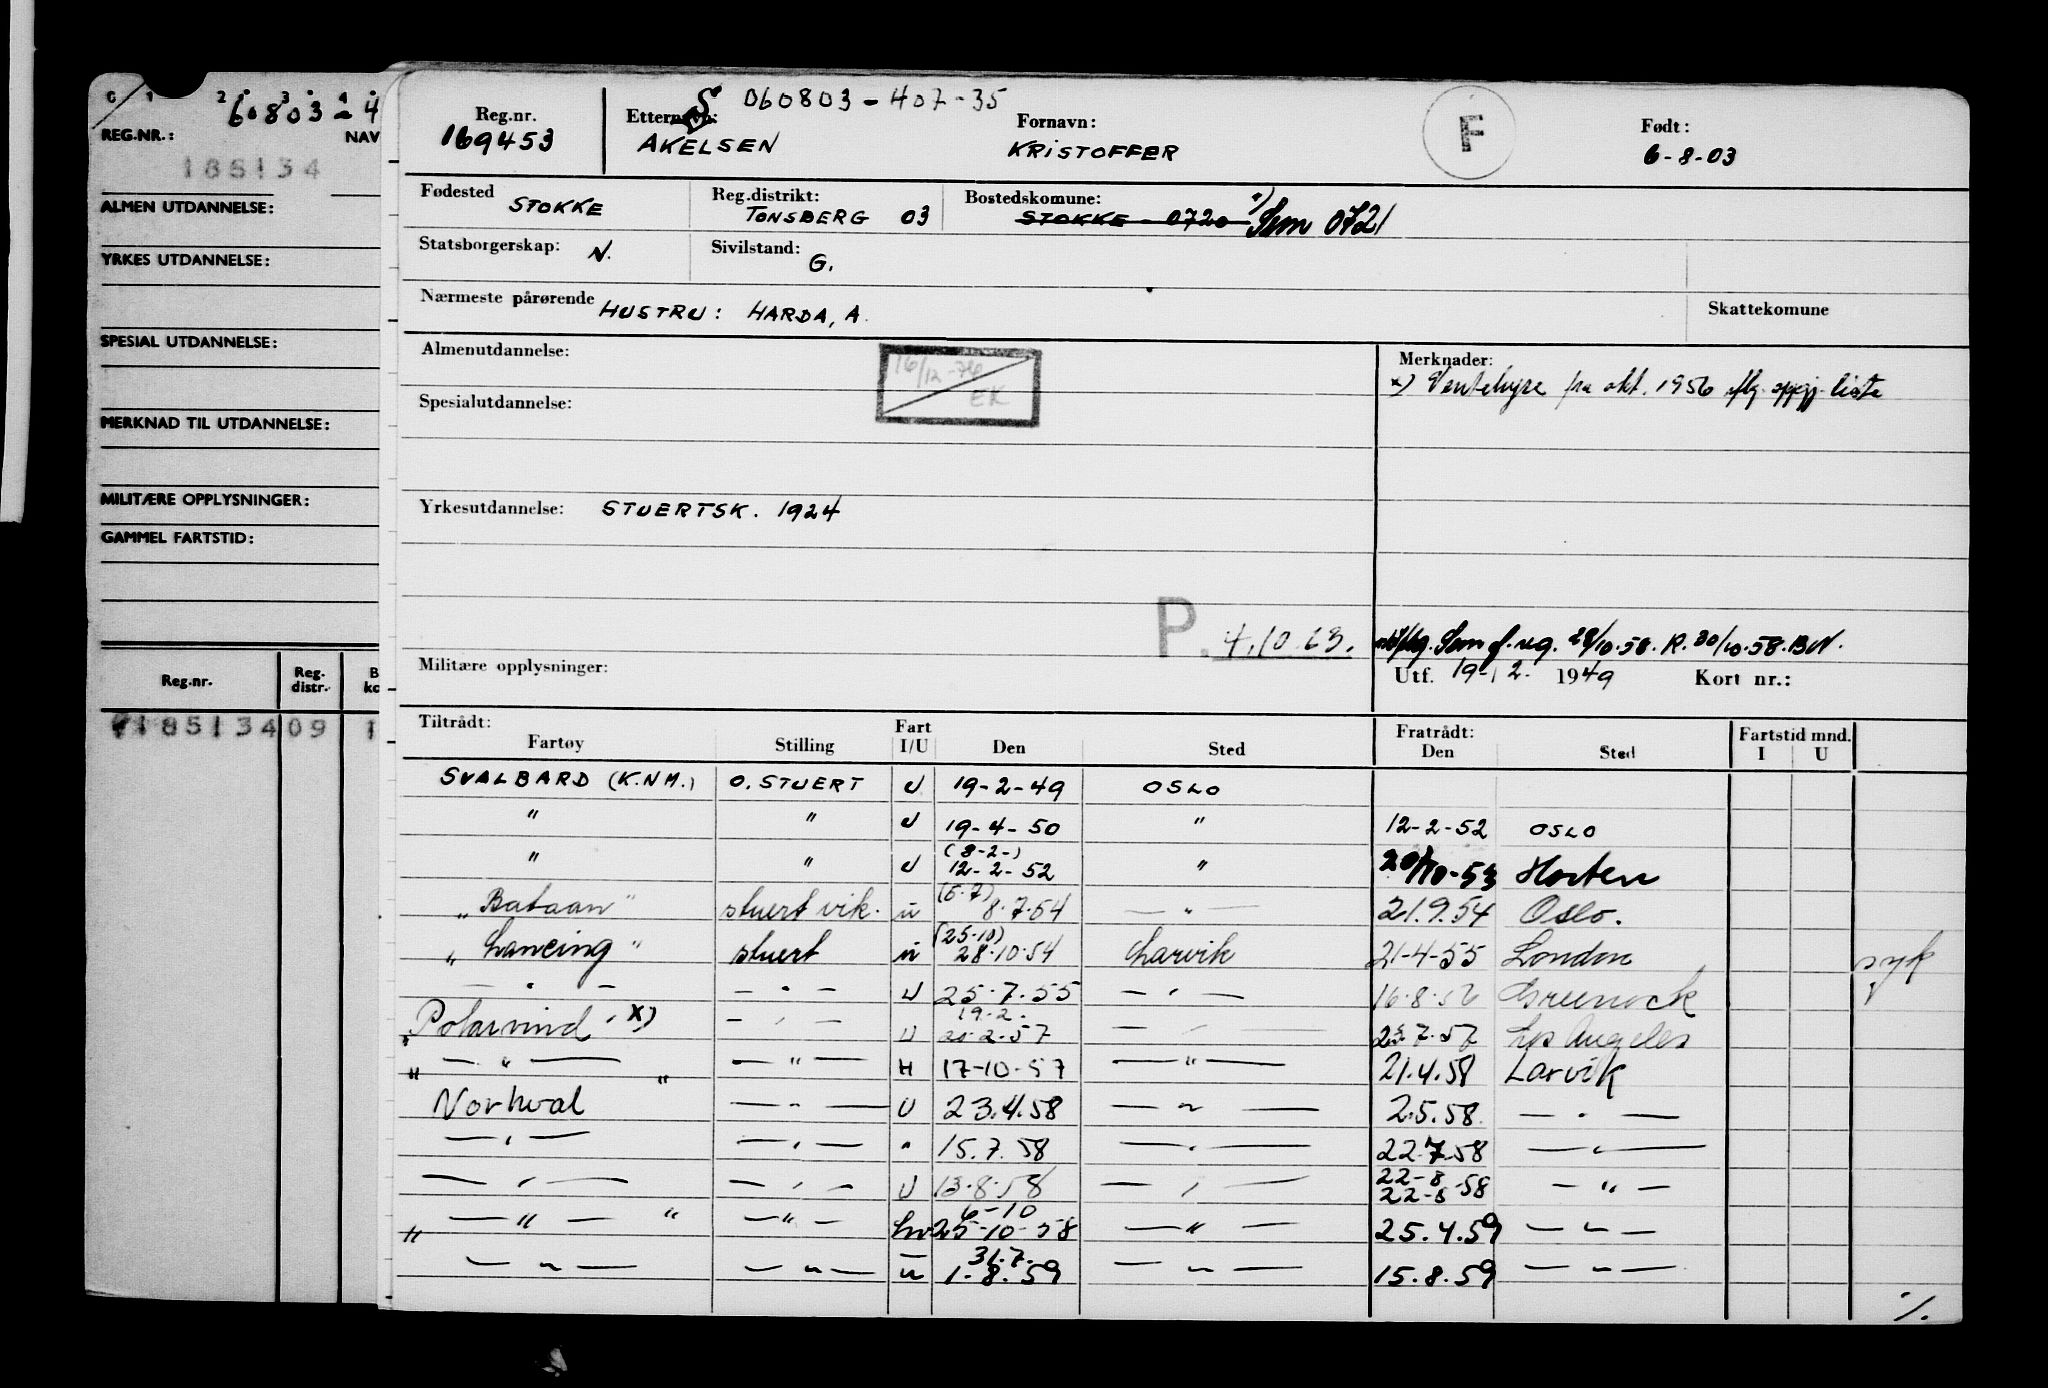 0 1 2 3 4
60803-4
REG.NR.: NAV
185134
ALMEN UTDANNELSE:
YRKES UTDANNELSE:
SPESIAL UTDANNELSE:
MERKNAD TIL UTDANNELSE:
MILITÆRE OPPLYSNINGER:
GAMMEL FARTSTID:
Reg.nr. Reg. distr. B ko
185134 09 1
S 060803-407-35
Reg.nr. Etternavn: Fornavn: F Født:
169453 AKELSEN KRISTOFFER 6-8-03
Fødested STOKKE Reg.distrikt: TØNSBERG 03 Bostedskomune: STOKKE - 0720 x) Sem 0721
Statsborgerskap: N. Sivilstand: G.
Nærmeste pårørende HUSTRU: HARDA, A. Skattekomune
Almenutdannelse: 16/12-76 EK Merknader:
x) Ventehyre fra okt. 1956 iflg. oppgj. liste
Spesialutdannelse:
Yrkesutdannelse: STUERTSK. 1924
P. 4.10.63. Sem f.reg. 28/10-58. R. 30/10-58. BN.
Militære opplysninger: Utf. 19-12. 1949 Kort nr.:
Tiltrådt: Fart Fratrådt: Fartstid mnd.
Fartøy Stilling I/U Den Sted Den Sted I U
SVALBARD (K.N.M.) O. STUERT U 19-2-49 OSLO
" " U 19-4-50 " 12-2-52 OSLO
" " U (8-2-) 12-2-52 " 20/10-53 Horten
„Bataan" stuert vik. u (5.7) 8.7.54 — " — 21.9.54 Oslo.
„Lancing" stuert u (25.10) 28.10.54 Larvik 21-4-55 London syk
— " — — " — U 25.7.55 — " — 16.8.56 Greenock
„Polarvind" x) — " — U 19.2. 57 — " — 7.57 Los Angeles
" — " — " — " — H 17-10-57 — " — 21.4.58 Larvik
Norhval — " — U 23.4.58 — " — 2.5.58. — " —
— " — — " — " 15.7.58 — " — 22.7.58 — " —
— " — — " — U 13.8.58 — " — 22-8 22-8-58 — " —
" — " — " — " — hv 6-10 25-10-58 — " — 25.4.59 — " —
— " — — " — u 31.7. 1-8.59 — " — 15.8.59 — " —
./.